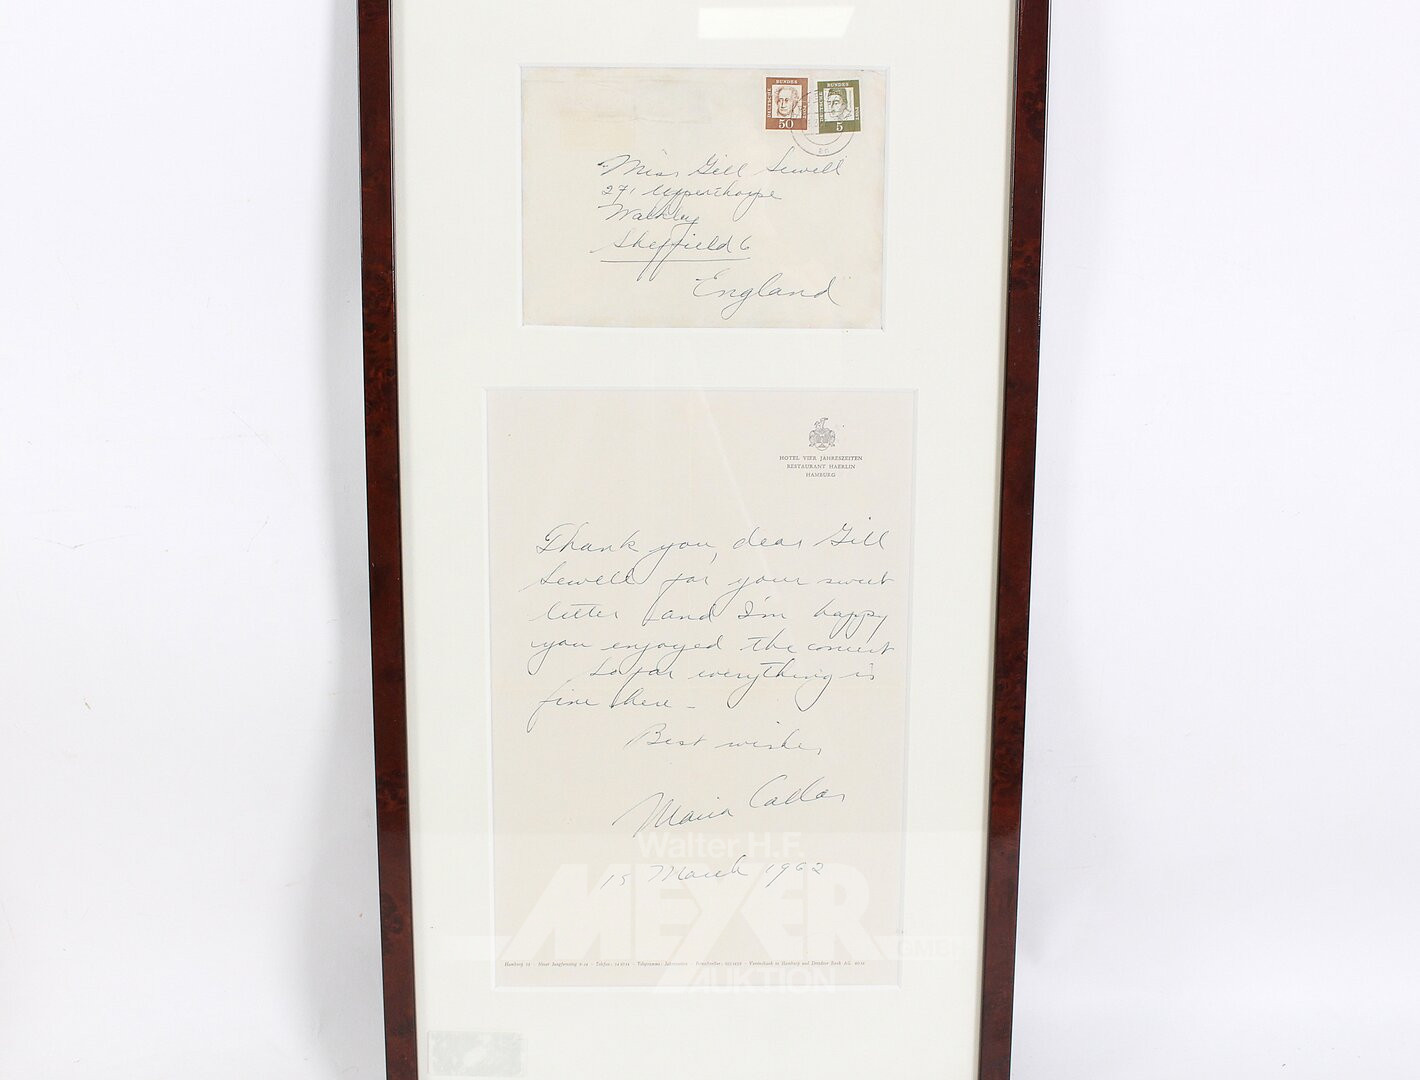 DEUTSCHE BUNDES POST
50
DEUTSCHE BUNDES POST
5
Miss Gill Sewell
271 Upperthorpe
Walkley
Sheffield 6
England
HOTEL VIER JAHRESZEITEN
RESTAURANT HAERLIN
HAMBURG
Thank you, dear Gill
Sewell for your sweet
letter and I'm happy
you enjoyed the concert
So far everything is
fine here -
Best wishes
Maria Callas
15 March 1962
Walter H.F.
MEYER
GMBH
AUKTION
Hamburg 36 - Neuer Jungfernstieg 9-14 - Telefon: